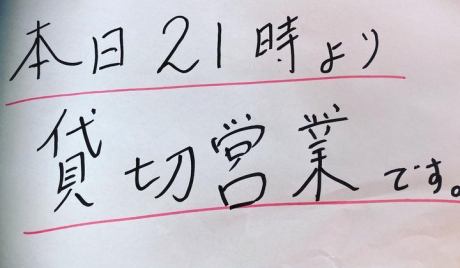 本日21時より
貸切営業です。